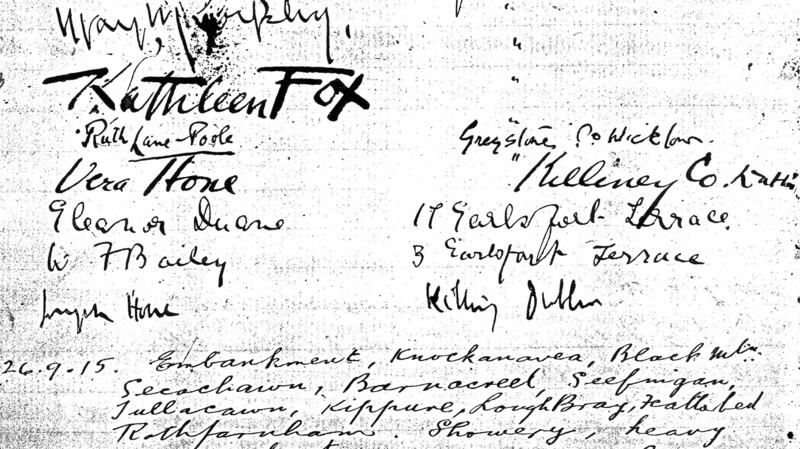 Kathleen Fox "
Ruth Lane-Poole Greystones Co Wicklow.
Vera Hone "Killiney Co. Dublin
Eleanor Duane 17 Earlsfort Terrace.
W F Bailey 3 Earlsfort Terrace
Joseph Hone Killiney Dublin
26.9.15. Embankment, Knockanavea, Black Mtn.
Seecachawn, Barnacreel, Seefingan,
Tullacawn, Kippure, Lough Bray, Featherbed
Rathfarnham. Showery, heavy